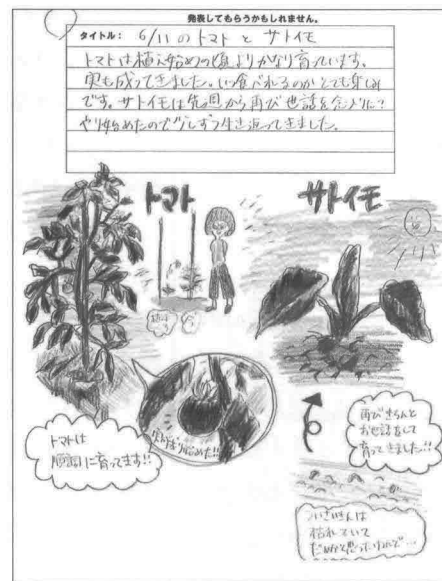 発表してもらうかもしれません。
タイトル： 6/11のトマトとサトイモ
トマトは植え始めの頃よりかなり育っています。
実も成ってきました。いつ食べれるのかとても楽しみ
です。サトイモは先週から再びお世話を念入りに
やり始めたので少しずつ生き返ってきました。
トマト
サトイモ
実がなり始めた!!
トマトは
順調に育ってます!!
再びきちんと
お世話をして
育ってきました!!
さいきんは
枯れていて
だめかと思っていたけれど…